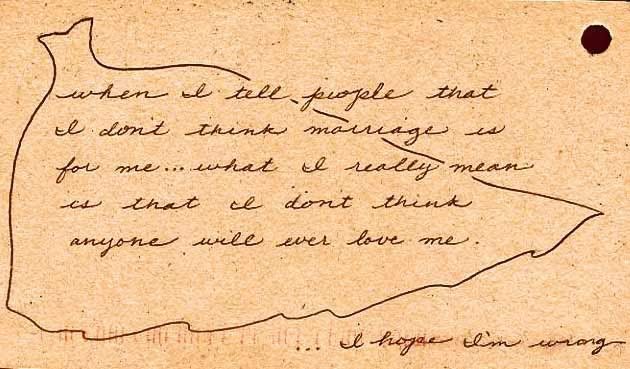 when I tell people that
I don't think marriage is
for me... what I really mean
is that I dont think
anyone will ever love me.
... I hope I'm wrong